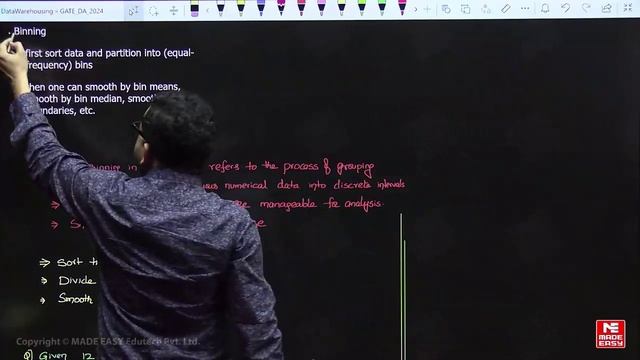 DataWarehousing - GATE_DA_2024
. Binning
first sort data and partition into (equal-
frequency) bins
hen one can smooth by bin means,
mooth by bin median, smoot
undaries, etc.
Binning in refers to the process of grouping
ous numerical data into discrete intervals
⇒ re manageable for analysis.
⇒ S
⇒ Sort t
⇒ Divide
⇒ Smooth
Q) Given 12
Copyright © MADE EASY Edutech Pvt. Ltd.
MADE EASY